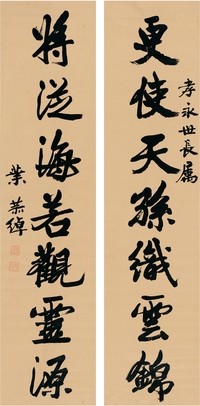 更使天孫織雲錦
孝永世長屬
將從海若觀靈源
葉恭綽